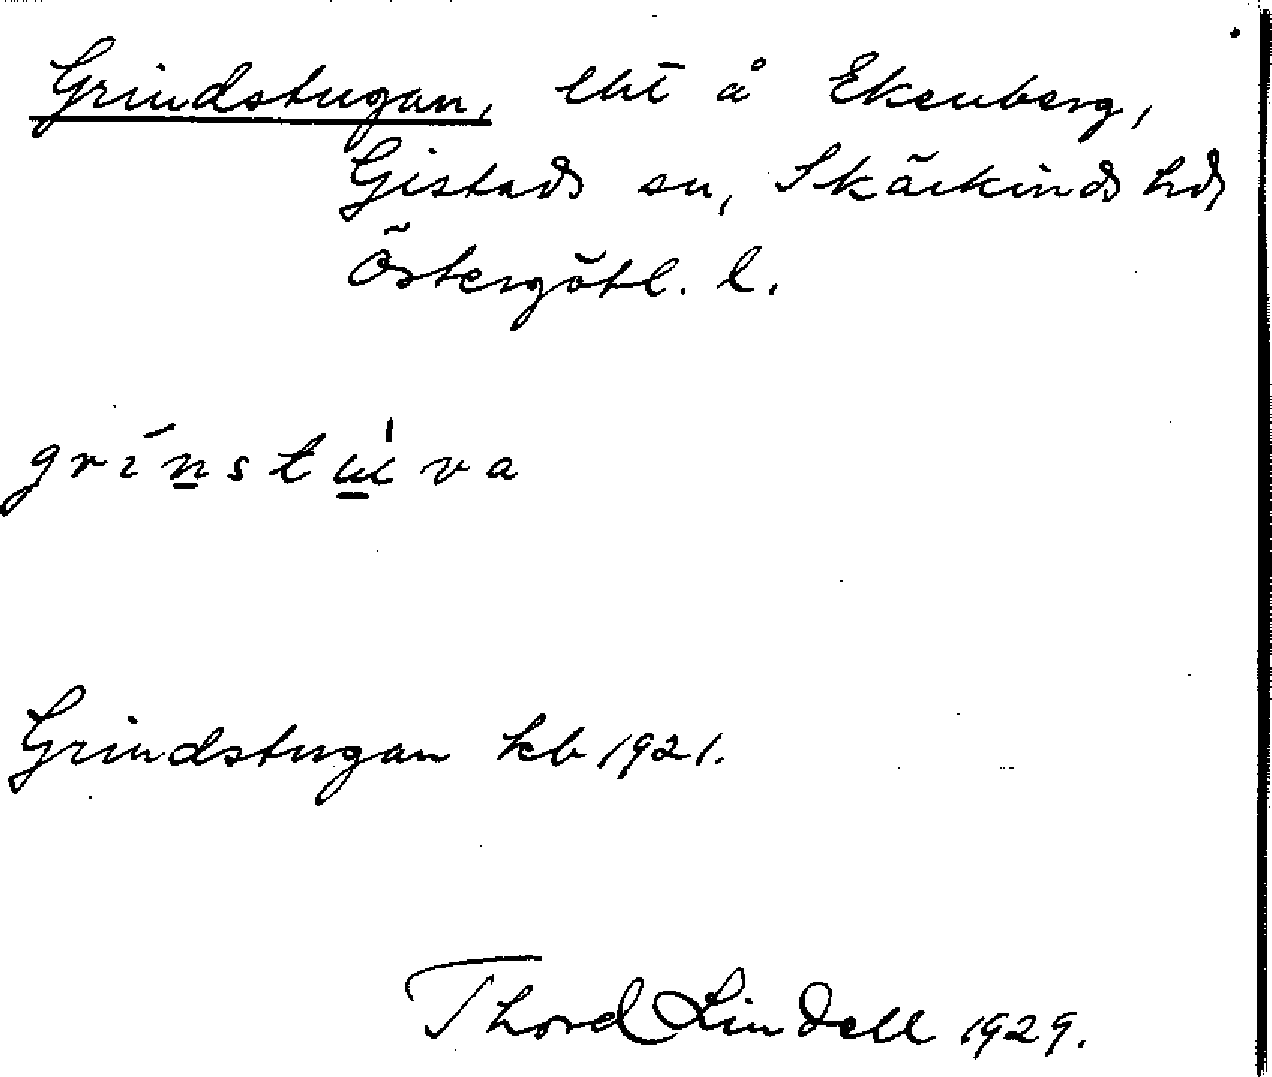 Grindstugan, lht å Ekenberg,
Gistads sn, Skärkinds hd,
Östergötl. l.
grínstu̍va
Grindstugan kb 1921.
Thord Lindell 1929.